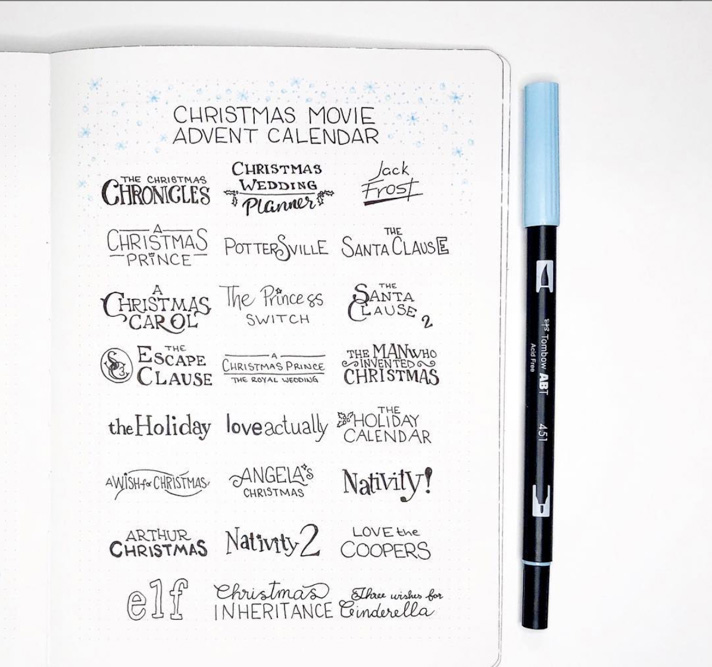 CHRISTMAS MOVIE
ADVENT CALENDAR
THE CHRISTMAS
CHRONICLES
CHRISTMAS
WEDDING
Planner
Jack
Frost
A
CHRISTMAS
PRINCE
POTTERSVILLE
THE
SANTA CLAUSE
A
CHRISTMAS
CAROL
The Princess
SWITCH
THE
SANTA
CLAUSE 2
THE
ESCAPE
CLAUSE
A
CHRISTMAS PRINCE
THE ROYAL WEDDING
THE MAN WHO
INVENTED
CHRISTMAS
the Holiday
love actually
THE
HOLIDAY
CALENDAR
A WISH for CHRISTMAS
ANGELA's
CHRISTMAS
Nativity!
ARTHUR
CHRISTMAS
Nativity 2
LOVE the
COOPERS
elf
Christmas
INHERITANCE
Three wishes for
Cinderella
Tombow ABT
Acid Free
451